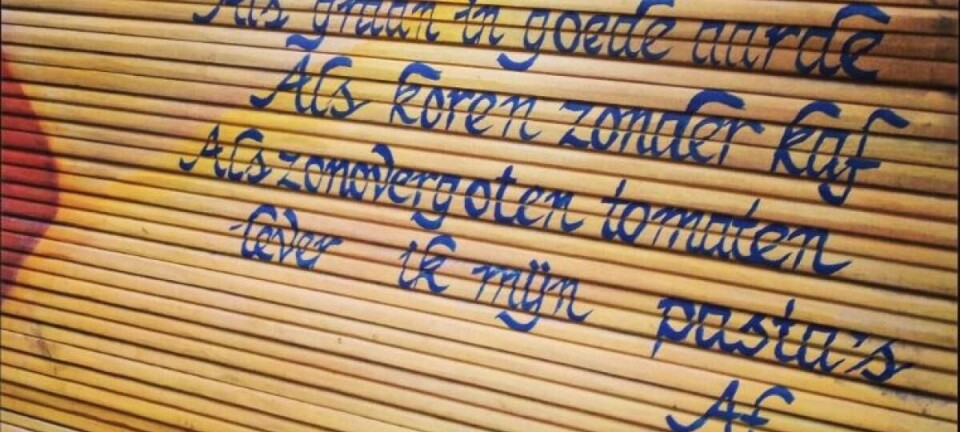 Als graan in goede aarde
Als koren zonder kaf
Als zonovergoten tomaten
lever ik mijn pasta's
Af